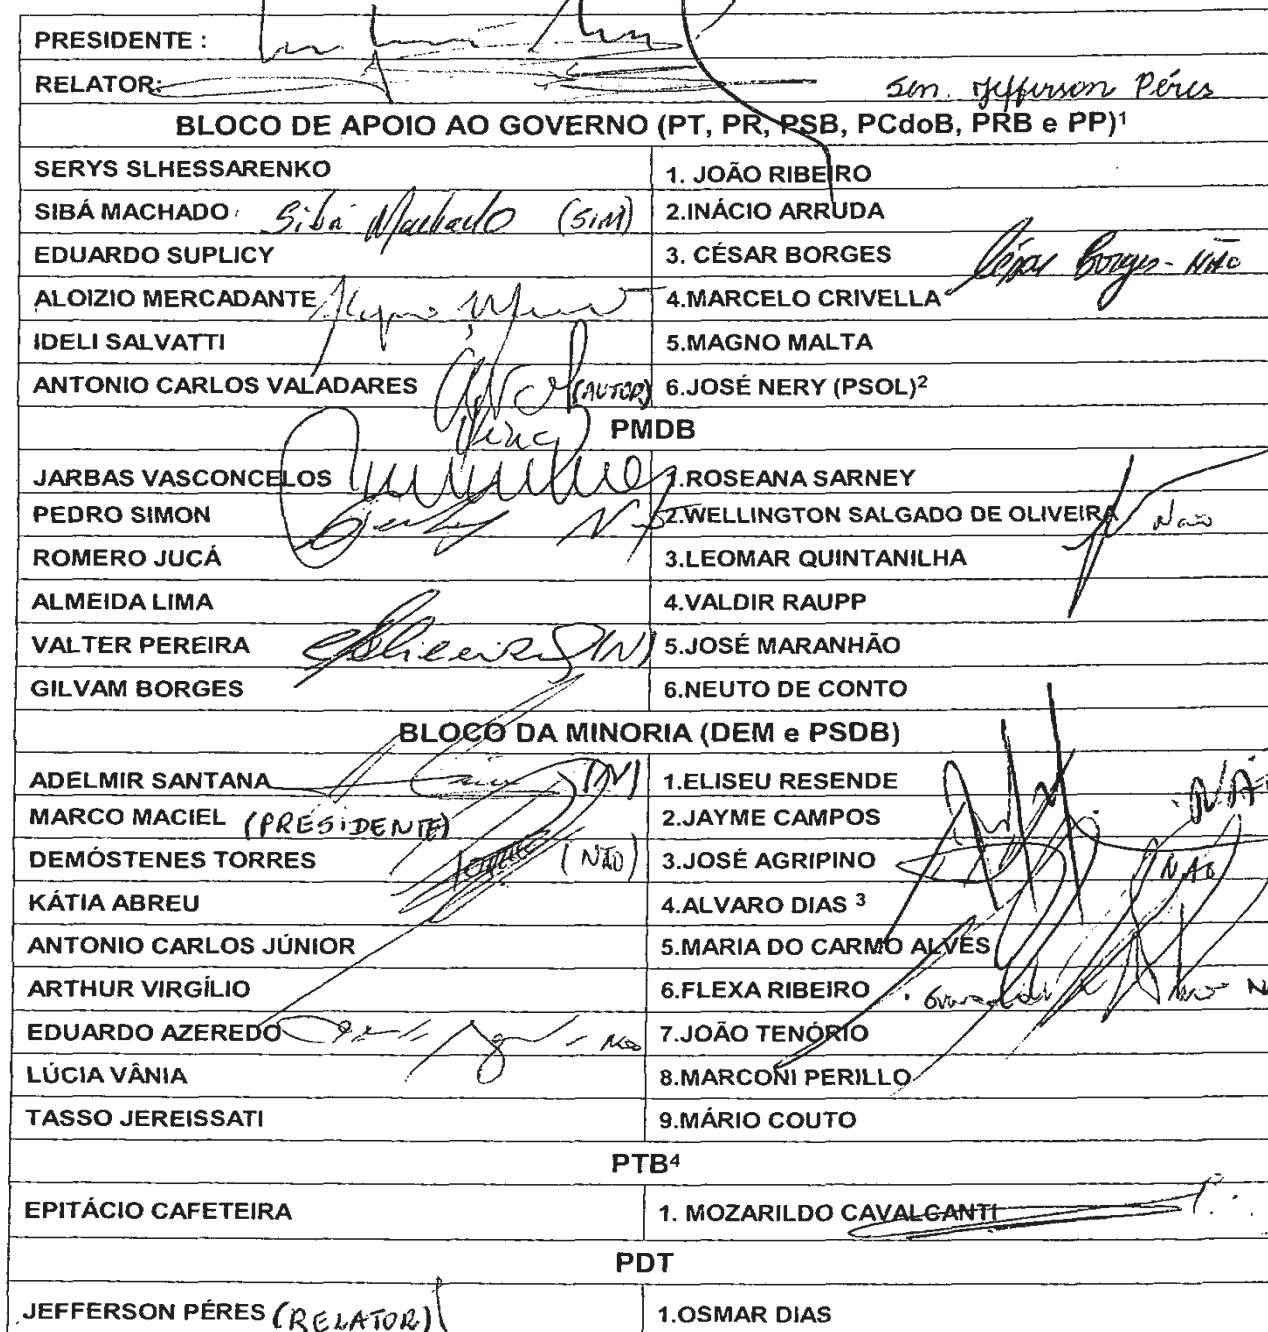 PRESIDENTE :
RELATOR: Sen. Jefferson Péres
BLOCO DE APOIO AO GOVERNO (PT, PR, PSB, PCdoB, PRB e PP)¹
SERYS SLHESSARENKO 1. JOÃO RIBEIRO
SIBÁ MACHADO Sibá Machado (SIM) 2.INÁCIO ARRUDA
EDUARDO SUPLICY 3. CÉSAR BORGES César Borges - NÃO
ALOIZIO MERCADANTE 4.MARCELO CRIVELLA
IDELI SALVATTI 5.MAGNO MALTA
ANTONIO CARLOS VALADARES (AUTOR) 6.JOSÉ NERY (PSOL)²
PMDB
JARBAS VASCONCELOS 1.ROSEANA SARNEY
PEDRO SIMON 2.WELLINGTON SALGADO DE OLIVEIRA Não
ROMERO JUCÁ 3.LEOMAR QUINTANILHA
ALMEIDA LIMA 4.VALDIR RAUPP
VALTER PEREIRA (N) 5.JOSÉ MARANHÃO
GILVAM BORGES 6.NEUTO DE CONTO
BLOCO DA MINORIA (DEM e PSDB)
ADELMIR SANTANA (N) 1.ELISEU RESENDE
MARCO MACIEL (PRESIDENTE) 2.JAYME CAMPOS
DEMÓSTENES TORRES (NÃO) 3.JOSÉ AGRIPINO NÃO
KÁTIA ABREU 4.ALVARO DIAS ³
ANTONIO CARLOS JÚNIOR 5.MARIA DO CARMO ALVES
ARTHUR VIRGÍLIO 6.FLEXA RIBEIRO
EDUARDO AZEREDO Não 7.JOÃO TENÓRIO
LÚCIA VÂNIA 8.MARCONI PERILLO
TASSO JEREISSATI 9.MÁRIO COUTO
PTB⁴
EPITÁCIO CAFETEIRA 1. MOZARILDO CAVALCANTI
PDT
JEFFERSON PÉRES (RELATOR) 1.OSMAR DIAS